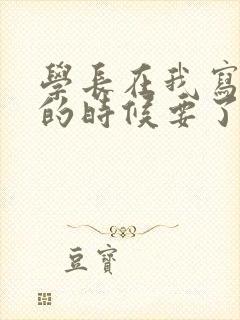 學長在我寫
的時候要了
豆寶